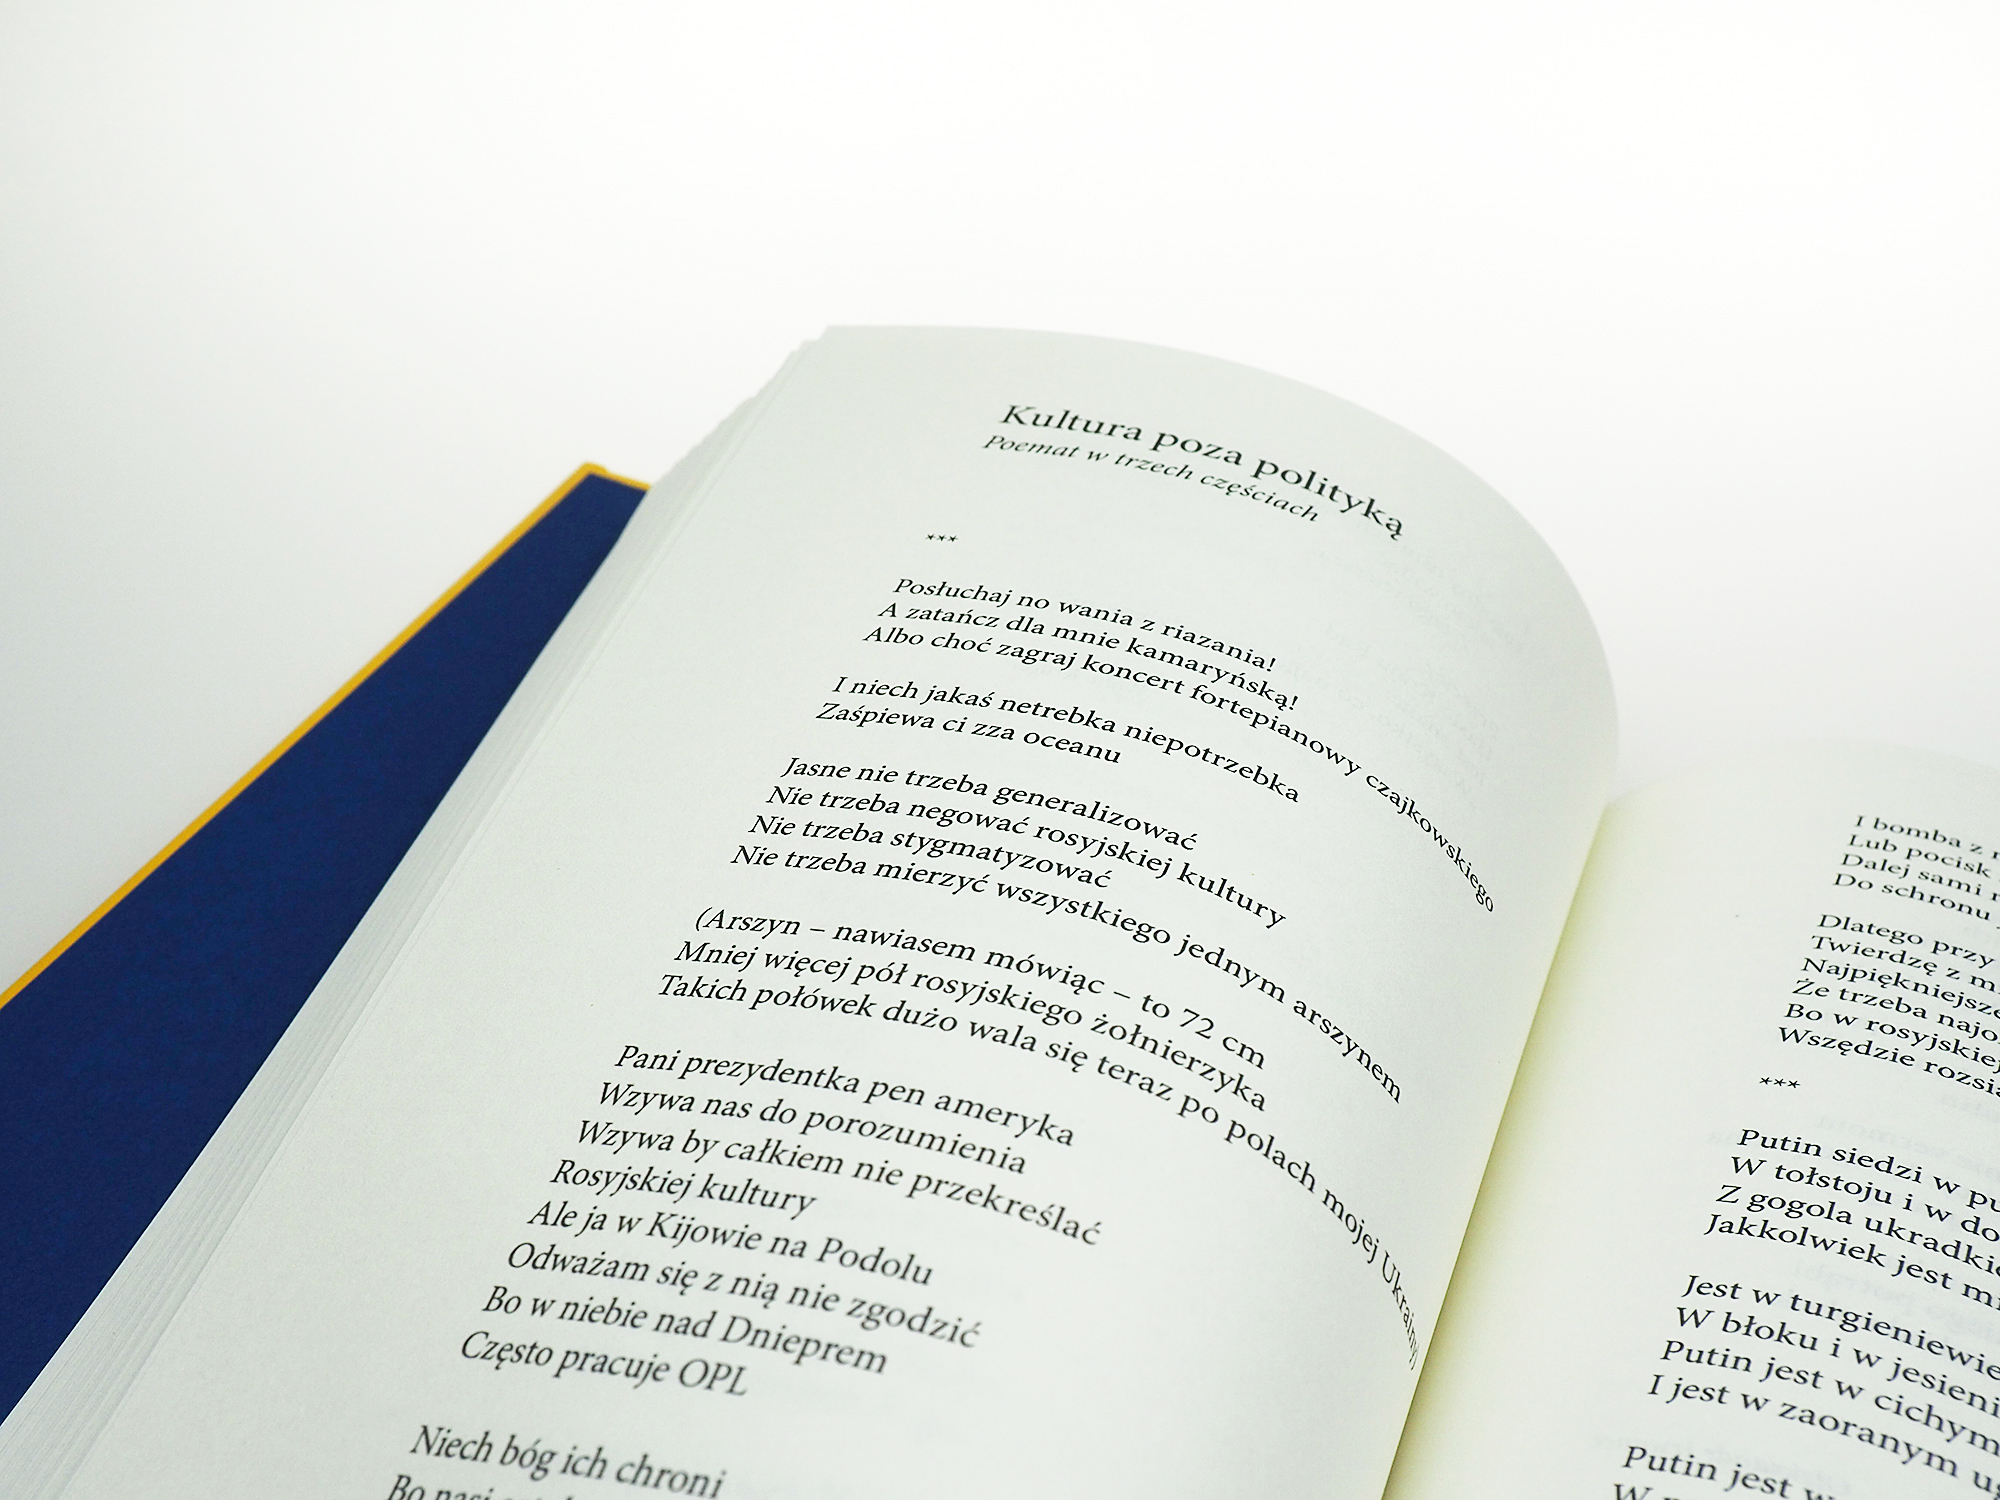 Kultura poza polityką
Poemat w trzech częściach
***
Posłuchaj no wania z riazania!
A zatańcz dla mnie kamaryńską!
Albo choć zagraj koncert fortepianowy czajkowskiego
I niech jakaś netrebka niepotrzebka
Zaśpiewa ci zza oceanu
Jasne nie trzeba generalizować
Nie trzeba negować rosyjskiej kultury
Nie trzeba stygmatyzować
Nie trzeba mierzyć wszystkiego jednym arszynem
(Arszyn – nawiasem mówiąc – to 72 cm
Mniej więcej pół rosyjskiego żołnierzyka
Takich połówek dużo wala się teraz po polach mojej Ukrainy)
Pani prezydentka pen ameryka
Wzywa nas do porozumienia
Wzywa by całkiem nie przekreślać
Rosyjskiej kultury
Ale ja w Kijowie na Podolu
Odważam się z nią nie zgodzić
Bo w niebie nad Dnieprem
Często pracuje OPL
Niech bóg ich chroni
Bo nasi
I bomba z
Lub pocisk
Dalej sami
Do schronu
Dlatego przy
Twierdzę z
Najpiękniejsze
Że trzeba
Bo w rosyjskiej
Wszędzie
***
Putin siedzi w
W tołstoju i w
Z gogola
Jakkolwiek jest
Jest w turgieniewie
W błoku i w jesieni
Putin jest w cichym
I jest w zaoranym
Putin jest w
W